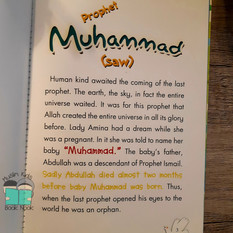 Prophet
Muhammad
(saw)
Human kind awaited the coming of the last
prophet. The earth, the sky, in fact the entire
universe waited. It was for this prophet that
Allah created the entire universe in all its glory
before. Lady Amina had a dream while she
was a pregnant. In it she was told to name her
baby "Muhammad." The baby's father,
Abdullah was a descendant of Prophet Ismail.
Sadly Abdullah died almost two months
before baby Muhammad was born. Thus,
when the last prophet opened his eyes to the
world he was an orphan.
Book Nook